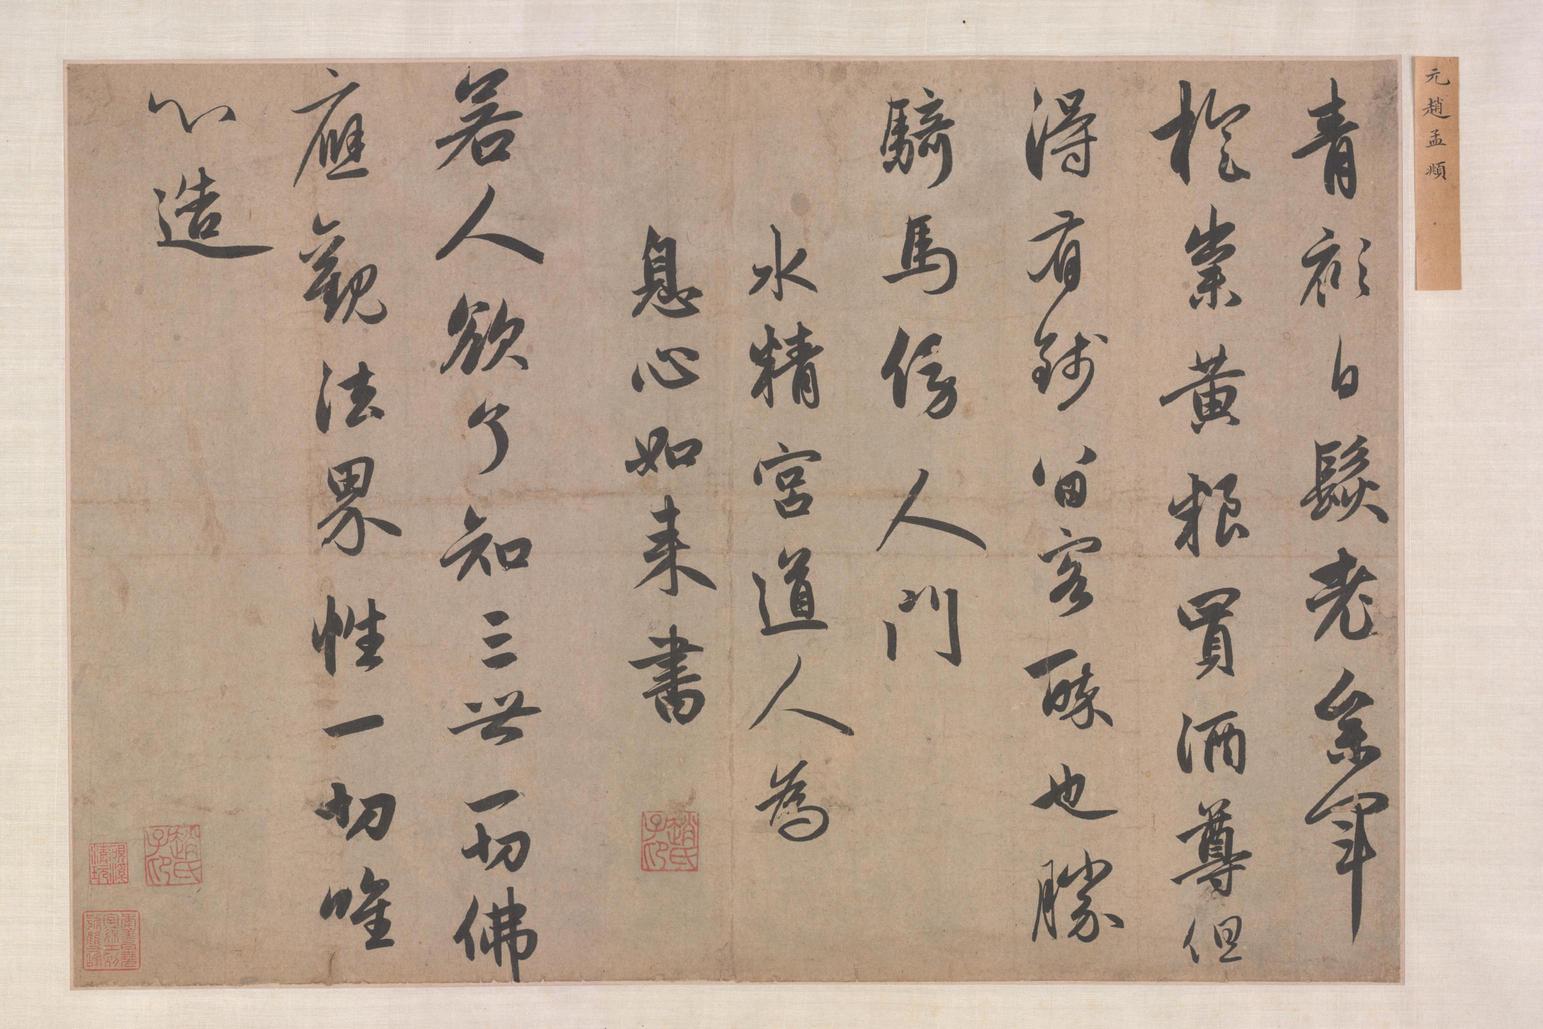 元趙孟頫
青衫白髮老參軍
旋粜黃粮買酒尊但
得有錢留客醉也勝
騎馬傍人門
水精宮道人為
息心如来書
趙氏子昂
若人欲了知三世一切佛
應觀法界性一切唯
心造
趙氏子昂